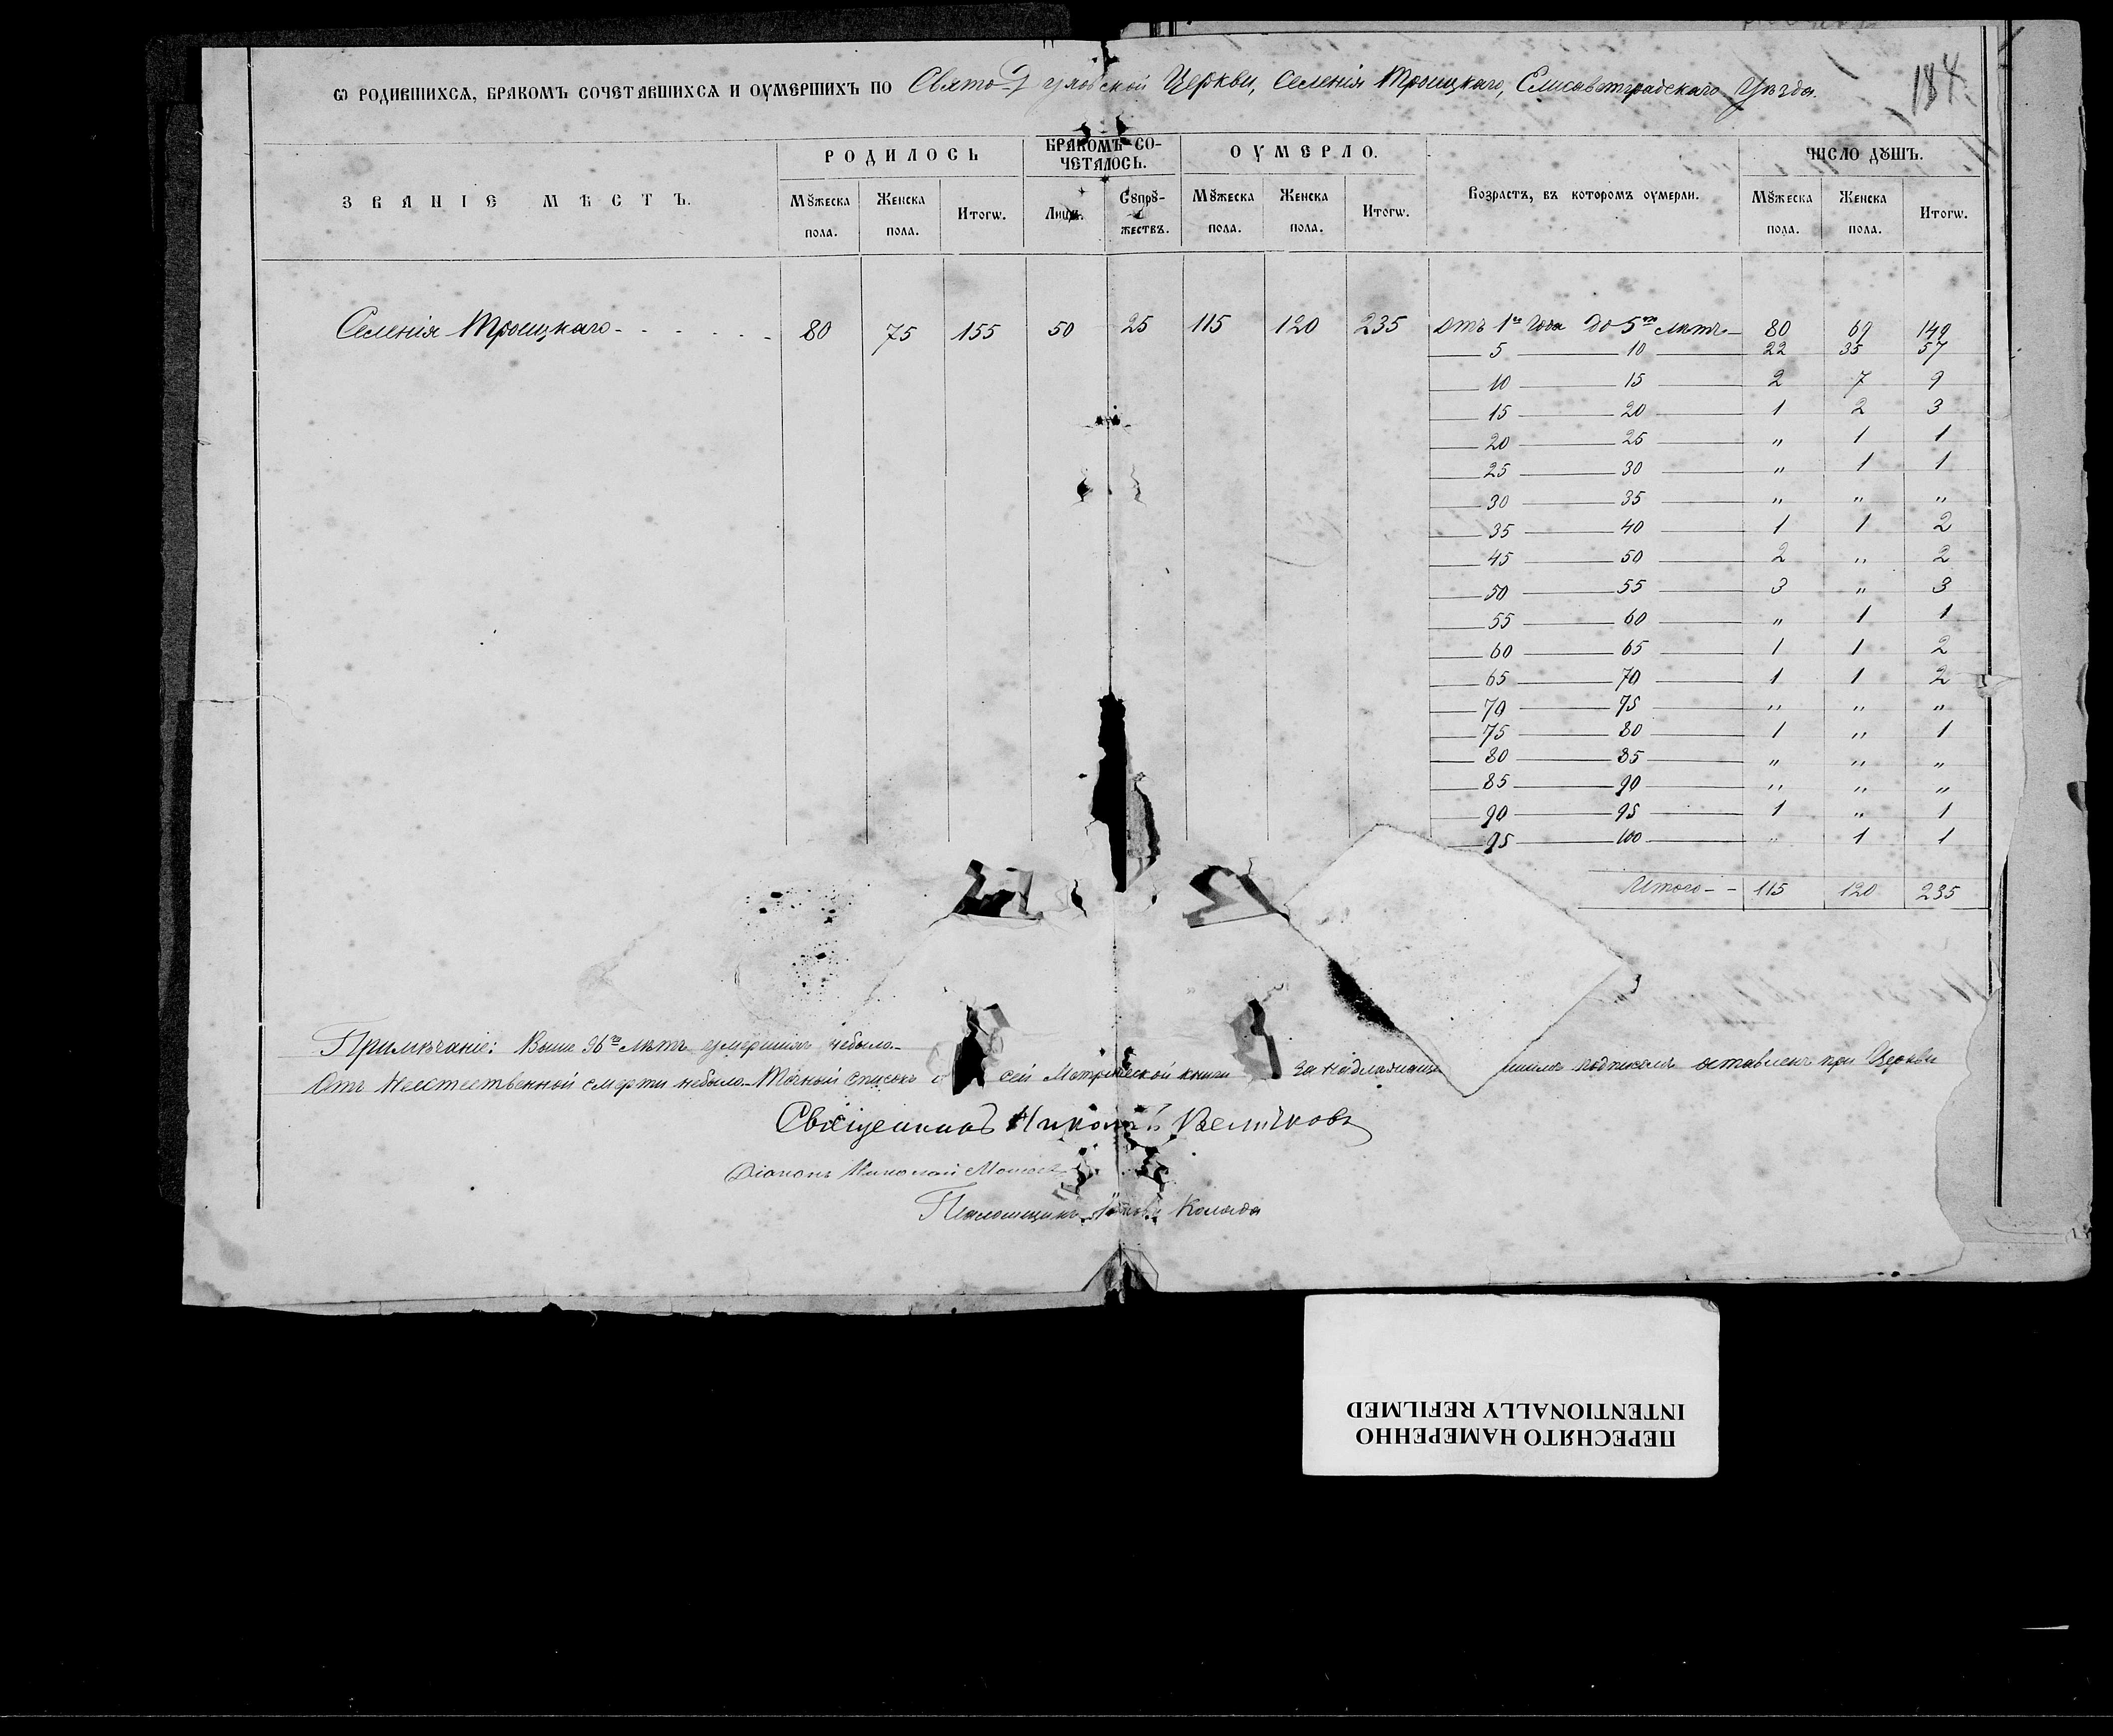 184.
Ѡ РОДИВШИХСѦ, БРАКОМЪ СОЧЕТАВШИХСѦ И ОУМЕРШИХЪ ПО Свято- Церкви, Селенія Троицкаго, Елисаветградскаго Уѣзда.
ЗВАНІЕ МѢСТЪ. РОДИЛОСЬ БРАКОМЪ СОЧЕТАЛОСЬ. ОУМЕРЛО. Возрастъ, въ которомъ оумерли. ЧИСЛО ДꙊШЪ.
Мꙋжеска пола. Женска пола. Итогѡ. Лицъ. Сꙋпрꙋжествъ. Мꙋжеска пола. Женска пола. Итогѡ. Мꙋжеска пола. Женска пола. Итогѡ.
Селенія Троицкаго 80 75 155 50 25 115 120 235 отъ 1го года до 5ти лѣтъ 80 69 149
5 10 22 35 57
10 15 2 7 9
15 20 1 2 3
20 25 " 1 1
25 30 " 1 1
30 35 " " "
35 40 1 1 2
45 50 2 " 2
50 55 3 " 3
55 60 " 1 1
60 65 1 1 2
65 70 1 1 2
70 75 " " "
75 80 1 " 1
80 85 " " "
85 90 " " "
90 95 1 " 1
95 100 " 1 1
Итого 115 120 235
Примѣчаніе: Выше 96ти лѣтъ умершихъ небыло.
Отъ Неестественной смерти небыло. Точный списокъ сей Метрической книги за подписомъ оставленъ при Церкви
Священникъ Николай Величковъ
Діаконъ Николай
Псаломщикъ Коляда
ПЕРЕСНЯТО НАМЕРЕННО
INTENTIONALLY REFILMED